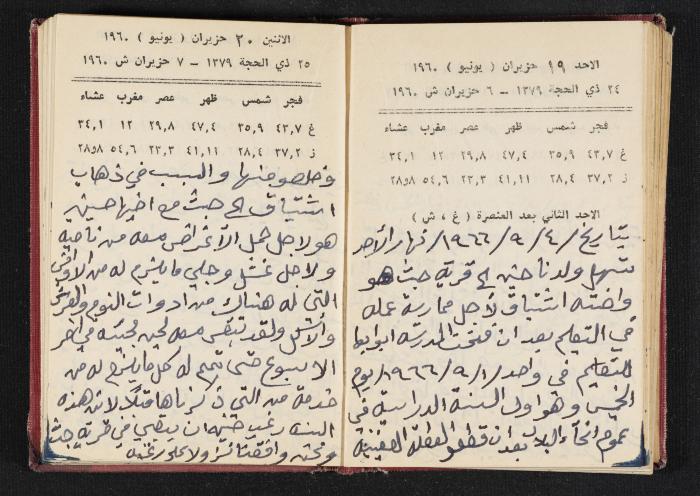 الاحد ١٩ حزيران ( يونيو ) ١٩٦٠
٢٤ ذي الحجة ١٣٧٩ – ٦ حزيران ش ١٩٦٠
فجر شمس ظهر عصر مغرب عشاء
غ ٤٣,٧ ٣٥,٩ ٤٧,٤ ٢٩,٨ ١٢ ٣٤,١
ز ٣٧,٢ ٢٨,٤ ٤١,١١ ٢٣,٣ ٥٤,٦ ٢٨و٨
الاحد الثاني بعد العنصرة ( غ ، ش )
بتاريخ /٤/ ٩/ ١٩٦٦/ نهار الأحد
ولدنا حنين الى قرية حيث هو
واخته اشتياق لأجل ممارسة عمله
في التعليم بعد ان فتحت المدرسة ابوابها
للتعليم في واحد /١/ ٩/ ١٩٦٦/ يوم
الخميس وهو اول السنة الدراسية في
عموم انحاء البلاد بعد ان قطعو العطلة الصيفية
الاثنين ٢٠ حزيران ( يونيو ) ١٩٦٠
٢٥ ذي الحجة ١٣٧٩ – ٧ حزيران ش ١٩٦٠
فجر شمس ظهر عصر مغرب عشاء
غ ٤٣,٧ ٣٥,٩ ٤٧,٤ ٢٩,٨ ١٢ ٣٤,١
ز ٣٧,٢ ٢٨,٤ ٤١,١١ ٢٣,٣ ٥٤,٦ ٢٨و٨
وخلصو منها والسبب في ذهاب
اشتياق الى حيث مع اخيها حنين
هو لاجل حمل الأغراض معه من ناحيه
ولاجل غسل وجلي ما يلزم له من
التي له هناك من ادوات النوم والفرش
والأكل ولقد تبقى معه لحين مجيئه في آخر
الاسبوع حتى تتمم له كل ما يلزم له من
خدمة من التي ذكرناها قبلاً لان هذه
السنه رغب حنين ان يبقى في قرية حيث
ونحن وافقنا ولا رغبته